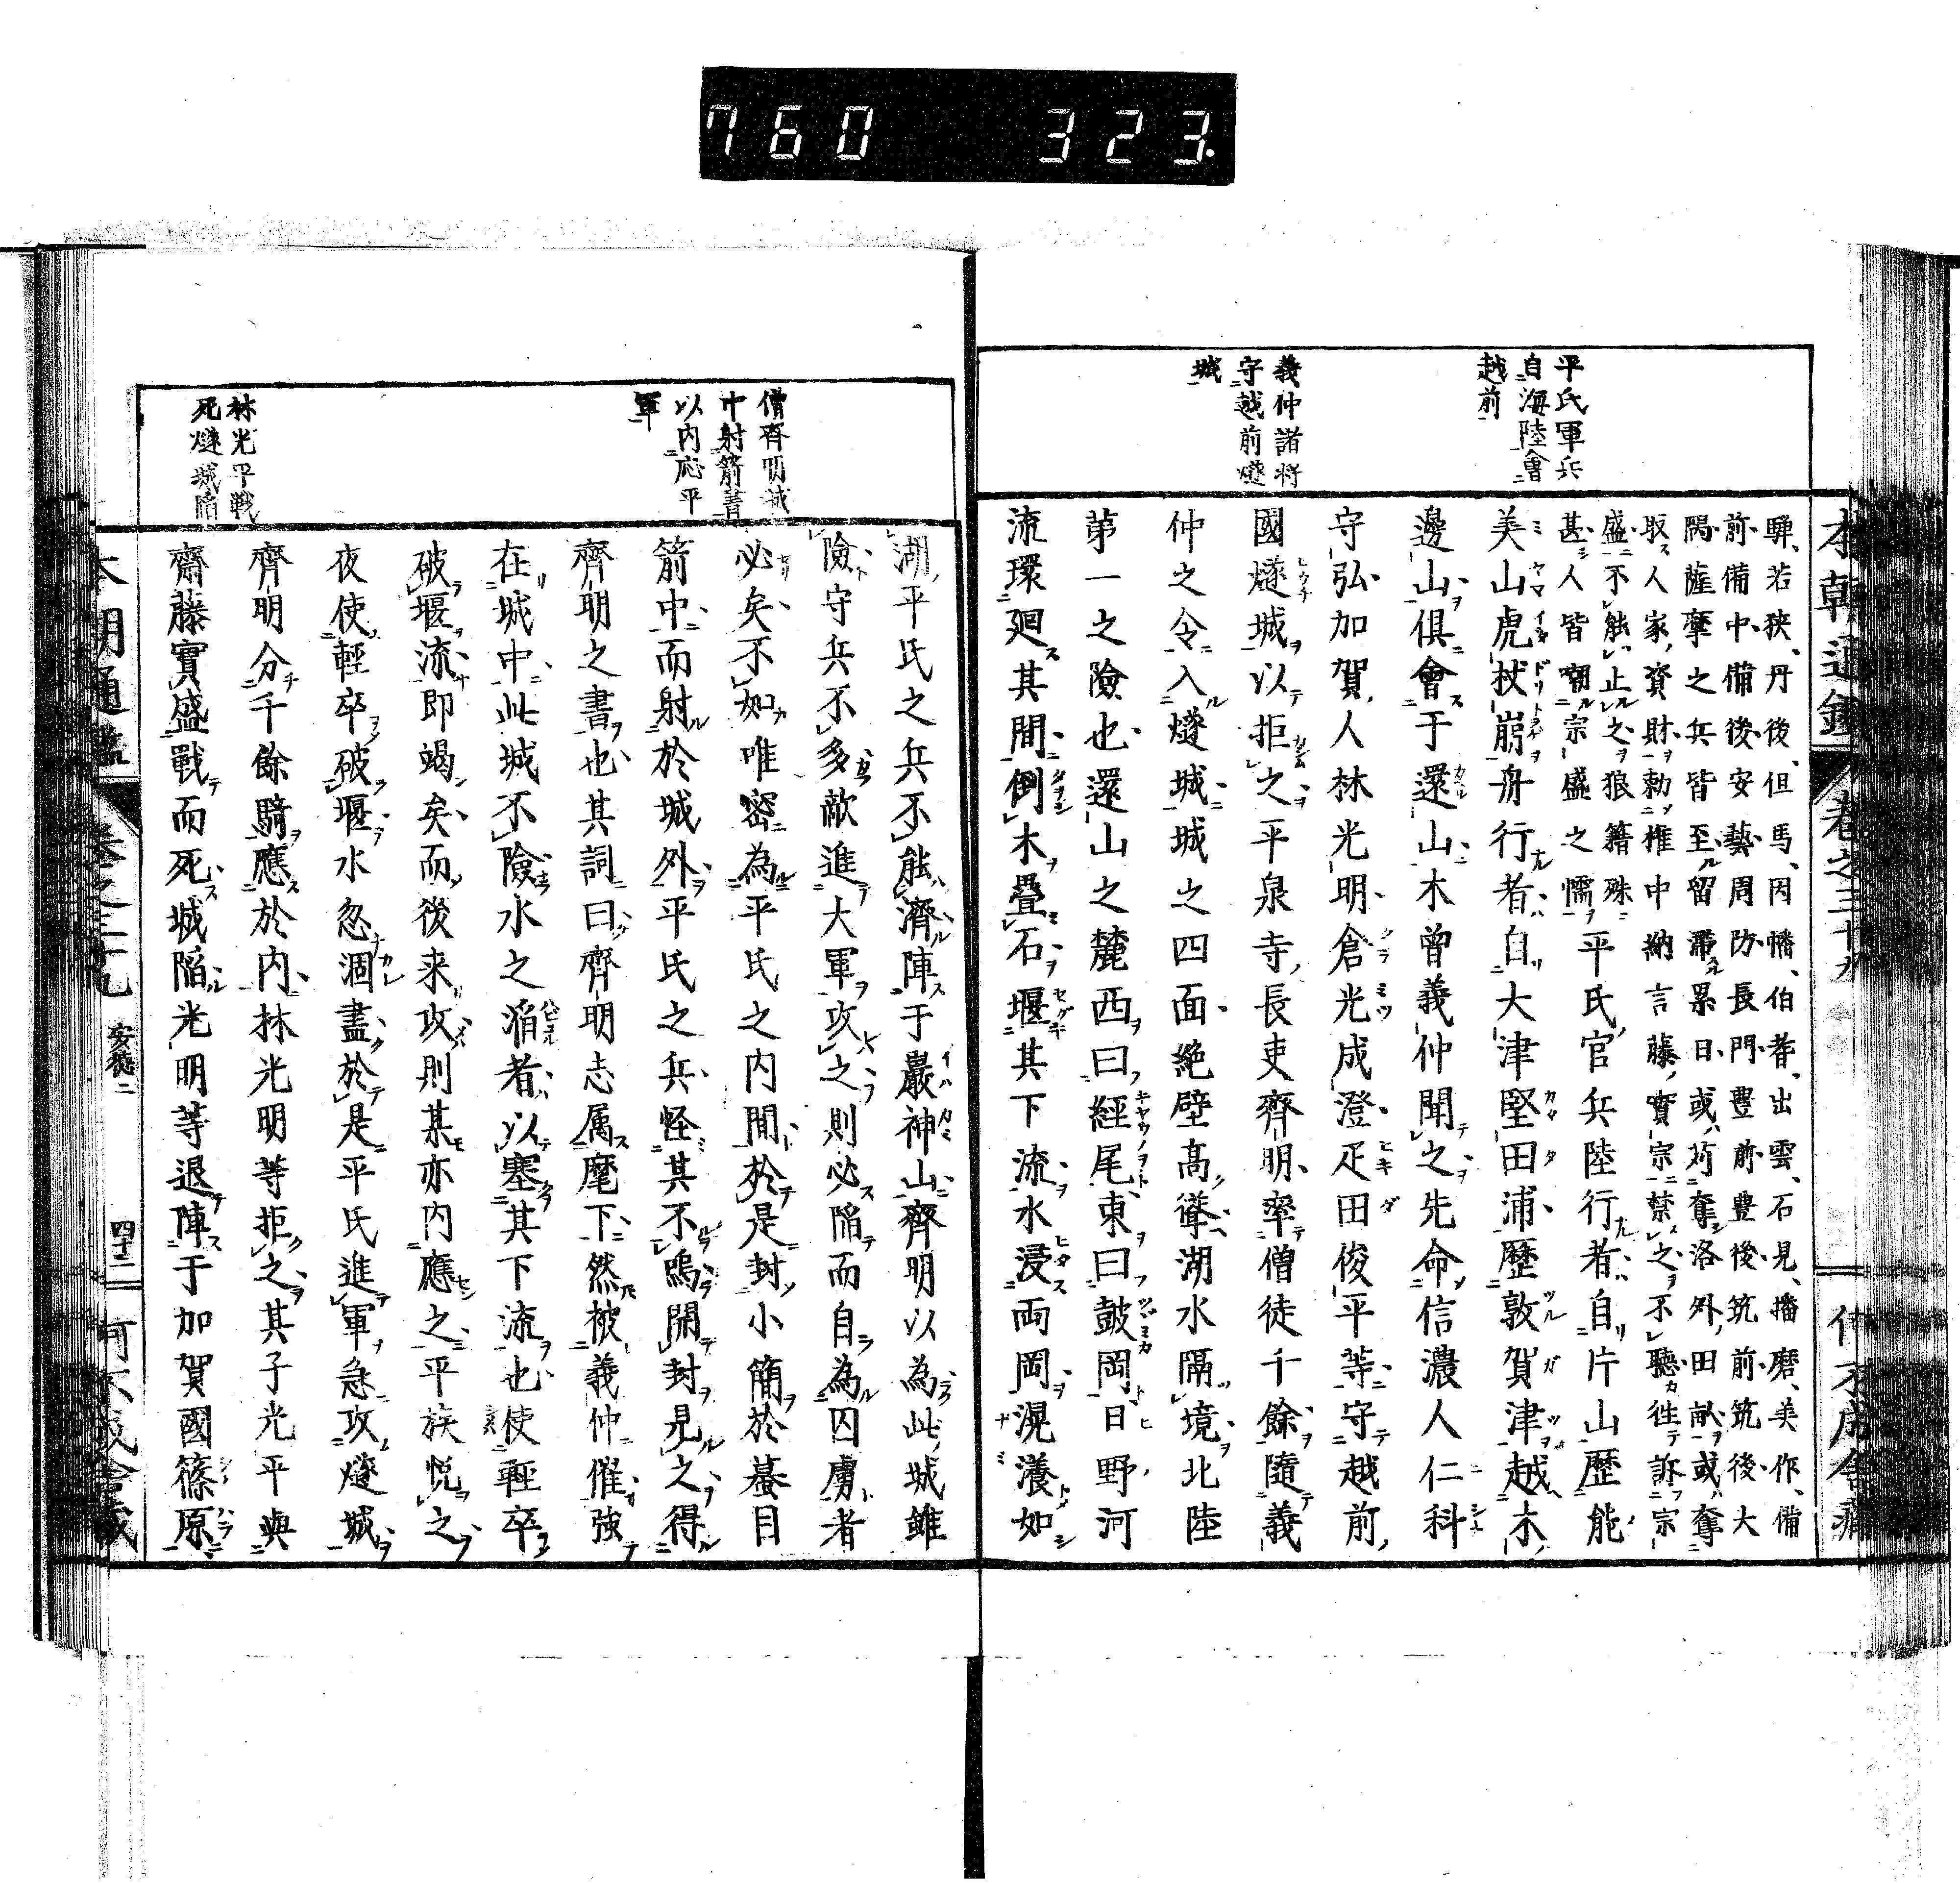 760 323.
平氏軍兵
自海陸會
越前
義仲諸将
守越前燧
城
驒、若狹、丹後、但馬、因幡、伯耆、出雲、石見、播磨、美作、備
前備中、備後、安藝、周防、長門、豊前、豊後、筑前、筑後、大
隅、薩摩之兵皆至、留滞累日、或苅奪洛外田畝、或奪
取人家資財、勅権中納言藤實宗禁之、不聽、徃訴宗
盛、不能止之、狼籍殊
甚、人皆嘲宗盛之懦
平氏官兵陸行者、自片山歷能
美山虎杖崩舟行者自大津堅田浦歷敦賀津越木
邊山俱會于還山木曾義仲聞之先命信濃人仁科
守弘加賀人林光明倉光成澄疋田俊平等守越前
國燧城以拒之平泉寺長吏齊明率僧徒千餘隨義
仲之令入燧城城之四面絶壁高聳湖水隔境北陸
第一之險也還山之麓西曰經尾東曰鼓岡日野河
流環廻其間倒木疊石堰其下流水浸両岡滉瀁如
本朝通鑑 卷之三十九
僧齊明城
中射箭書
以内応平
軍
林光平戰
死燧城陷
湖平氏之兵不能濟陣于巖神山齊明以為此城雖
險守兵不多敵進大軍攻之則必陷而自為囚虜者
必矣不如唯密為平氏之内間於是封小簡於蟇目
箭中而射於城外平氏之兵怪其不鳴開封見之得
齊明之書也其詞曰齊明志属麾下然被義仲催強
在城中此城不險水之滔者以塞其下流也使輕卒
破堰流即竭矣而後来攻則某亦内應之平族悦之
夜使輕卒破堰水忽涸盡於是平氏進軍急攻燧城
齊明分千餘騎應於内林光明等拒之其子光平與
齋藤實盛戰而死城陷光明等退陣于加賀國篠原
本朝通鑑 卷之三十九 安德二 四十二